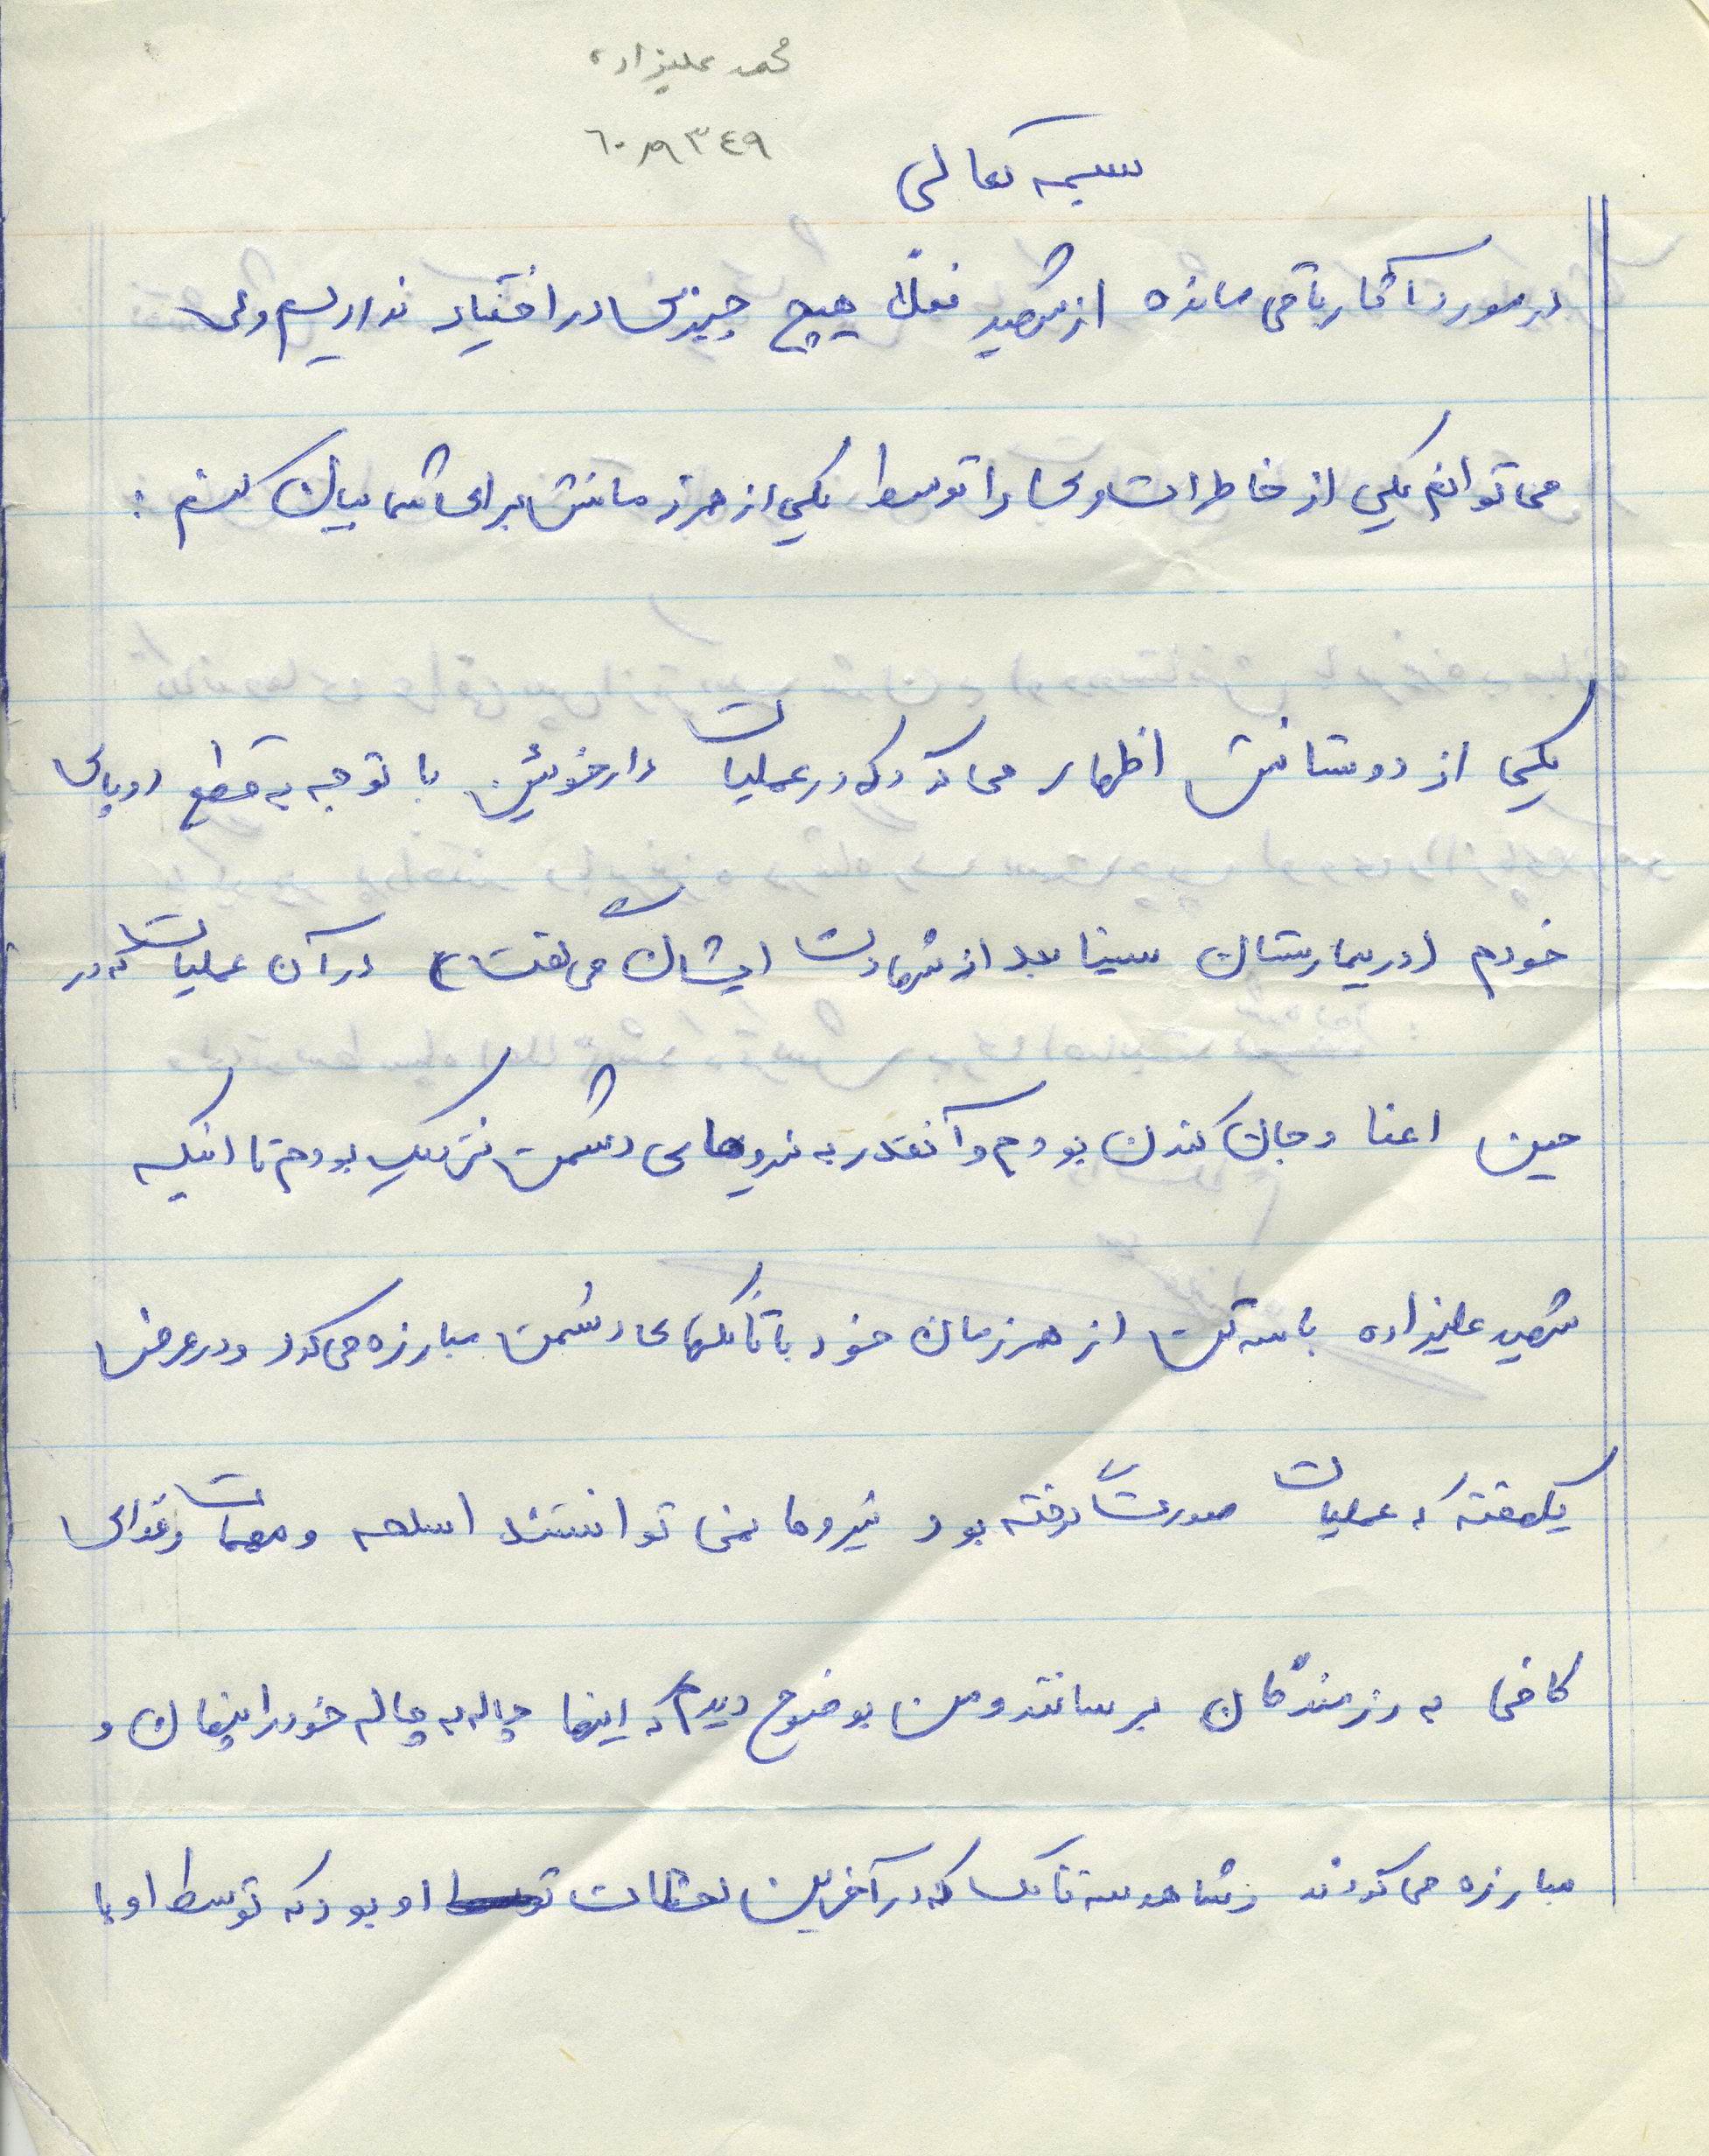 محمد علیزاده
٦٠١٩٣٤٩
بسمه تعالی
در مورد آثار باقی مانده از شهید فعلاً هیچ چیزی در اختیار نداریم ولی
می توانم یکی از خاطرات وی را توسط یکی از همرزمانش برای شما بیان کنم :
یکی از دوستانش اظهار می کرد که در عملیات دارخوئین با توجه به قطع دو پای
خودم (در بیمارستان سینا بعد از شهادت ایشان می گفت) در آن عملیات که در
حین اغنا و جان کندن بودم و آنقدر به نیروهای دشمن نزدیک بودم تا اینکه
شهید علیزاده با سه تن از همرزمان خود با تانکهای دشمن مبارزه می کرد و در عرض
یکهفته که عملیات صورت گرفته بود نیروها نمی توانستند اسلحه و مهمات و غذای
کافی به رزمندگان برسانند و من بوضوح دیدم که اینها چاله به چاله خود را پنهان و
مبارزه می کردند و شاهد سه تانک که در آخرین لحظات او بود که توسط او با